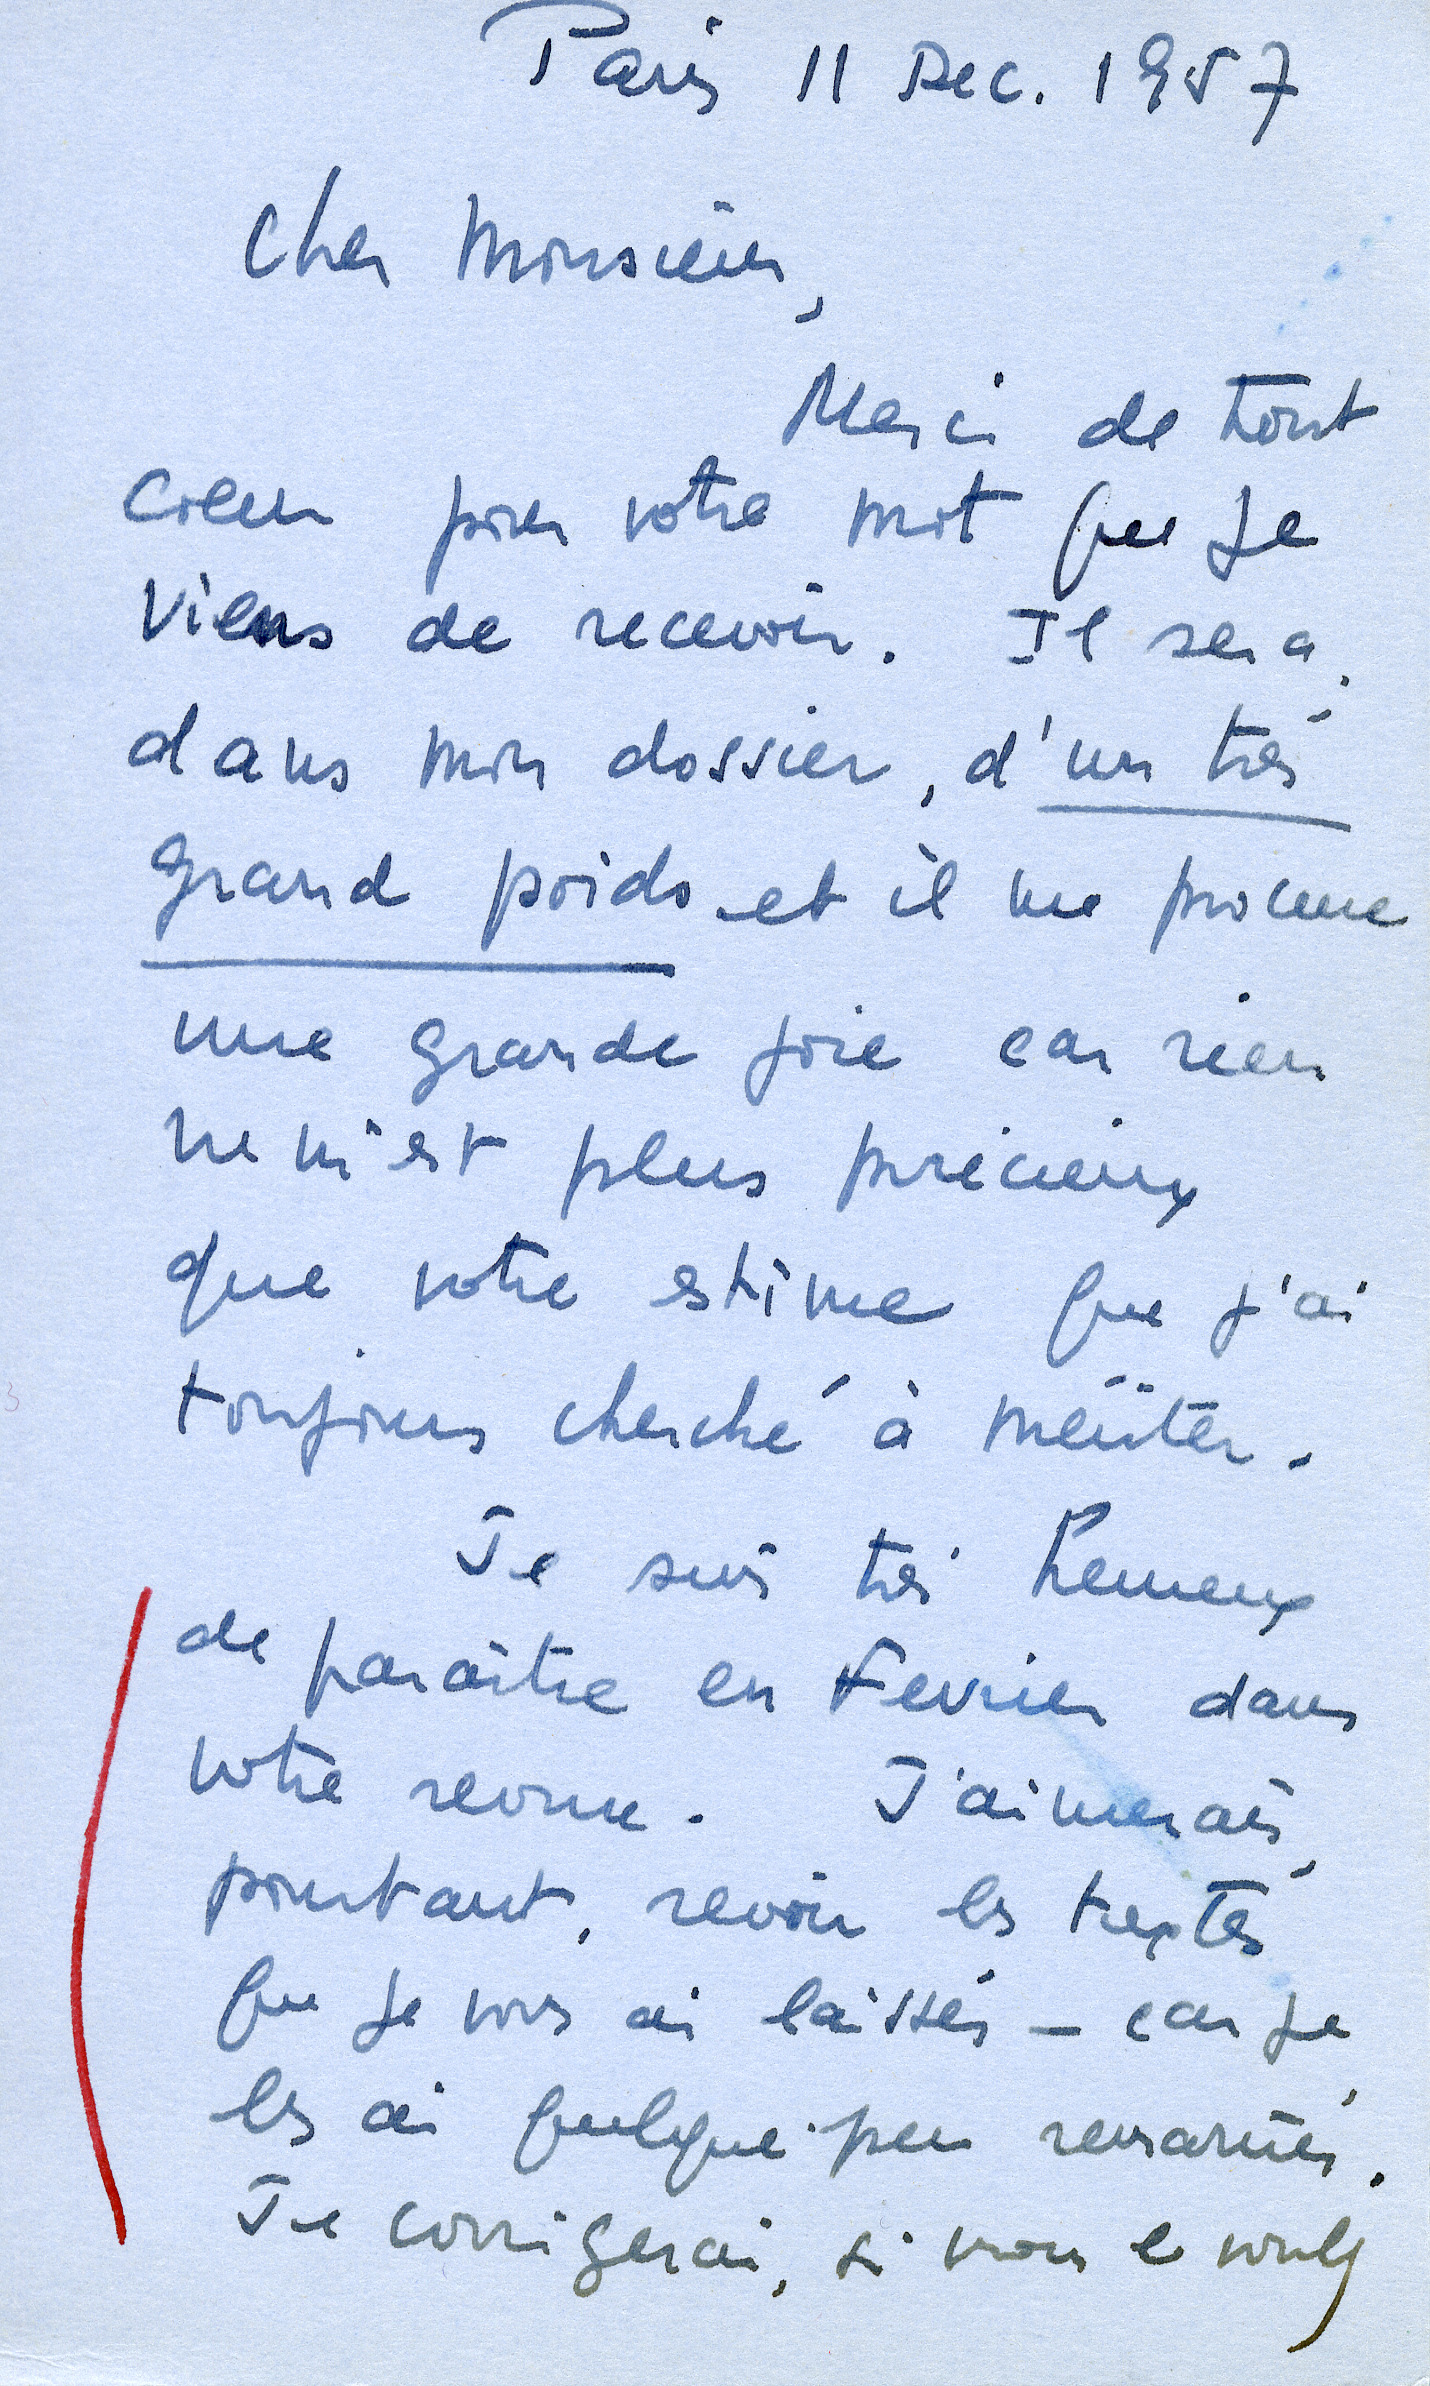 Paris 11 Dec. 1957
Cher Monsieur,
Merci de tout
coeur pour votre mot que je
viens de recevoir. Il sera,
dans mon dossier, d'un très
grand poids et il me procure
une grande joie car rien
ne m'est plus précieux
que votre estime que j'ai
toujours cherché à mériter.
Je suis très heureux
de paraître en Fevrier dans
votre revue. J'aimerais,
pourtant, revoir les textes
que je vous ai laissés – car je
les ai quelque peu remaniés.
Je corrigerai, si vous le voulez